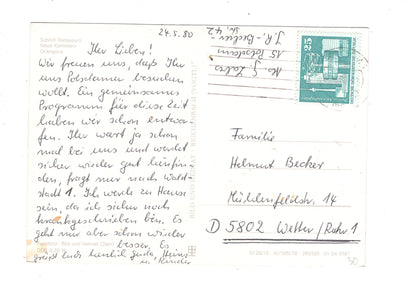 24.5.80
Ihr Lieben!
Wir freuen uns, daß Ihr
uns Potsdamer besuchen
wollt. Ein gemeinsames
Programm für diese Zeit
haben wir schon entwor-
fen. Ihr wart ja schon
mal bei uns und werdet
sicher wieder gut hinfin-
den, fragt nur nach Wald-
stadt 1. Ich werde zu Hause
sein, da ich sicher noch
krankgeschrieben bin. Es
geht mir aber schon wieder
besser. Es
grüßt Euch herzlich
u. Kinder
15 Potsdam
J.-R.-Becher-
Str. 42
25
Familie
Helmut Becker
Mühlenfeldstr. 14
D 5802 Wetter/Ruhr 1